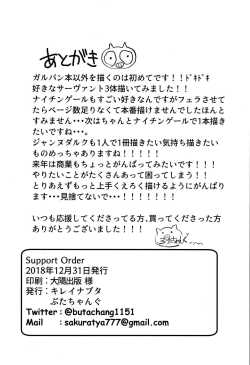 あとがき
ガルパン本以外を描くのは初めてです！！ﾄﾞｷﾄﾞｷ
好きなサーヴァント3体描いてみました！！
ナイチンゲールもすごい好きなんですがフェラさせて
たらページ数足りなくて本番描けませんでしたほんと
すみません・・・次はちゃんとナイチンゲールで1本描き
たいですね・・。
ジャンヌダルクも1人で1冊描きたい気持ち描きたい
ものめっちゃありますね！！！！！
来年は商業もちょっとがんばってみたいです！！！
やりたいことがたくさんあって困ってしまう！！
とりあえずもっと上手くえろく描けるようにがんばり
ます・・・見捨てないで・・・！！！！！
いつも応援してくださってる方,買ってくださった方
ありがとうございました！！！！！
Support Order
2018年12月31日発行
印刷：大陽出版 様
発行：キレイナブタ
ぶたちゃんぐ
Twitter：@butachang1151
Mail　：sakuratya777@gmail.com